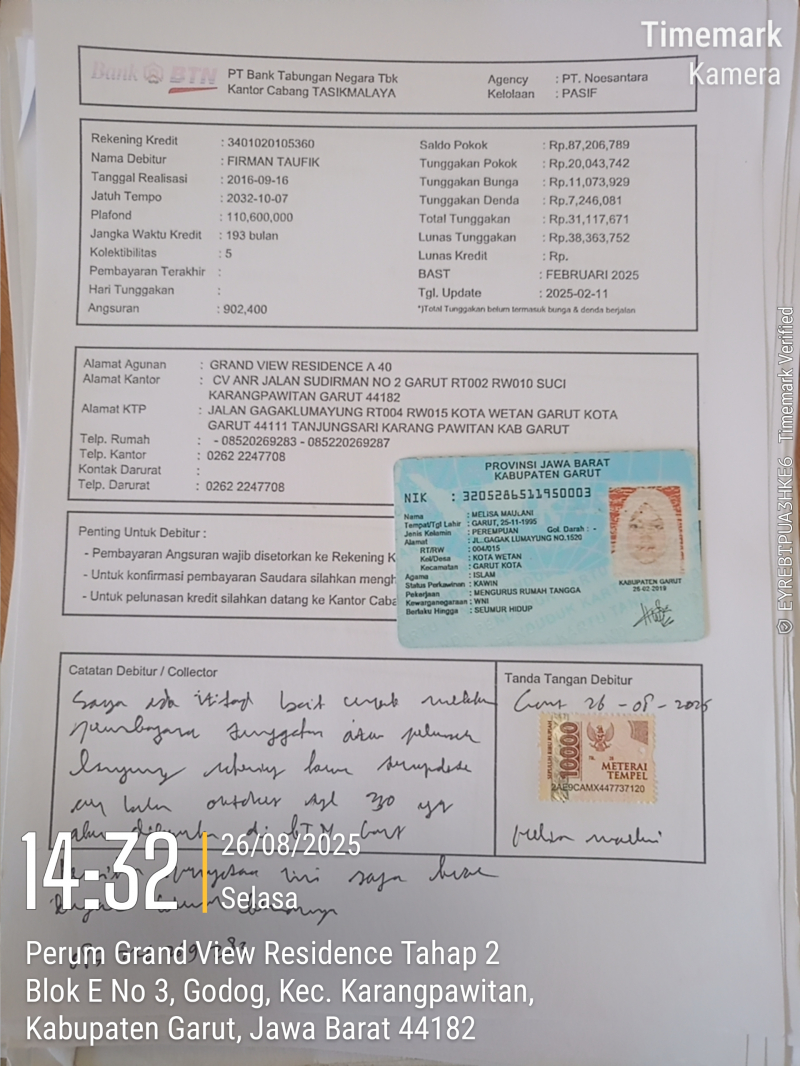 Timemark
Kamera
Bank BTN
PT Bank Tabungan Negara Tbk
Kantor Cabang TASIKMALAYA
Agency : PT. Noesantara
Kelolaan : PASIF
Rekening Kredit : 3401020105360
Nama Debitur : FIRMAN TAUFIK
Tanggal Realisasi : 2016-09-16
Jatuh Tempo : 2032-10-07
Plafond : 110,600,000
Jangka Waktu Kredit : 193 bulan
Kolektibilitas : 5
Pembayaran Terakhir :
Hari Tunggakan :
Angsuran : 902,400
Saldo Pokok : Rp.87,206,789
Tunggakan Pokok : Rp.20,043,742
Tunggakan Bunga : Rp.11,073,929
Tunggakan Denda : Rp.7,246,081
Total Tunggakan : Rp.31,117,671
Lunas Tunggakan : Rp.38,363,752
Lunas Kredit : Rp.
BAST : FEBRUARI 2025
Tgl. Update : 2025-02-11
*)Total Tunggakan belum termasuk bunga & denda berjalan
Alamat Agunan : GRAND VIEW RESIDENCE A 40
Alamat Kantor : CV ANR JALAN SUDIRMAN NO 2 GARUT RT002 RW010 SUCI
KARANGPAWITAN GARUT 44182
Alamat KTP : JALAN GAGAKLUMAYUNG RT004 RW015 KOTA WETAN GARUT KOTA
GARUT 44111 TANJUNGSARI KARANG PAWITAN KAB GARUT
Telp. Rumah : - 08520269283 - 085220269287
Telp. Kantor : 0262 2247708
Kontak Darurat :
Telp. Darurat : 0262 2247708
Penting Untuk Debitur :
- Pembayaran Angsuran wajib disetorkan ke Rekening K
- Untuk konfirmasi pembayaran Saudara silahkan mengh
- Untuk pelunasan kredit silahkan datang ke Kantor Caba
PROVINSI JAWA BARAT
KABUPATEN GARUT
NIK : 3205286511950003
Nama : MELISA MAULANI
Tempat/Tgl Lahir : GARUT, 25-11-1995
Jenis Kelamin : PEREMPUAN Gol. Darah : -
Alamat : JL.GAGAK LUMAYUNG NO.1520
RT/RW : 004/015
Kel/Desa : KOTA WETAN
Kecamatan : GARUT KOTA
Agama : ISLAM
Status Perkawinan : KAWIN
Pekerjaan : MENGURUS RUMAH TANGGA
Kewarganegaraan : WNI
Berlaku Hingga : SEUMUR HIDUP
KABUPATEN GARUT
26-02-2019
Catatan Debitur / Collector
Saya ada itikad baik untuk
30
di BTN Garut
ini saya
Tanda Tangan Debitur
Garut 26 - 08 - 2025
10000
METERAI
TEMPEL
2AE9CAMX447737120
14:32
26/08/2025
Selasa
Perum Grand View Residence Tahap 2
Blok E No 3, Godog, Kec. Karangpawitan,
Kabupaten Garut, Jawa Barat 44182
EYREBTPUA3HKE6 Timemark Verified